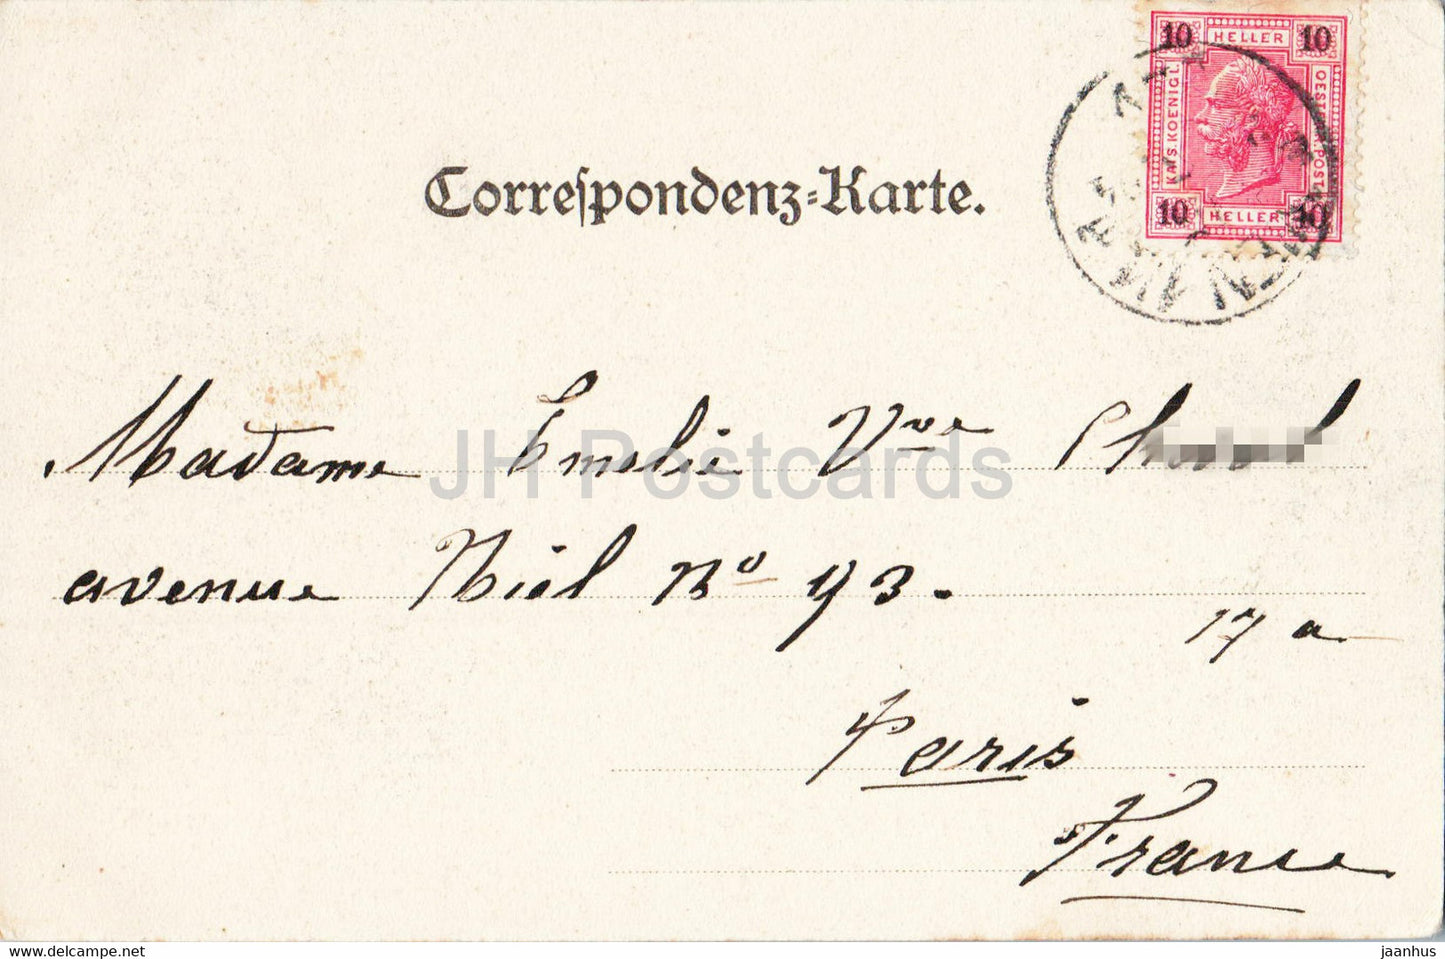 10 HELLER 10
KAIS. KOENIGL.
10 HELLER 10
Correspondenz-Karte.
Madame Emelie Vve
avenue Niel No 93.
17 a
Paris
France
JH Postcards
https://www.delcampe.net
jaanhus